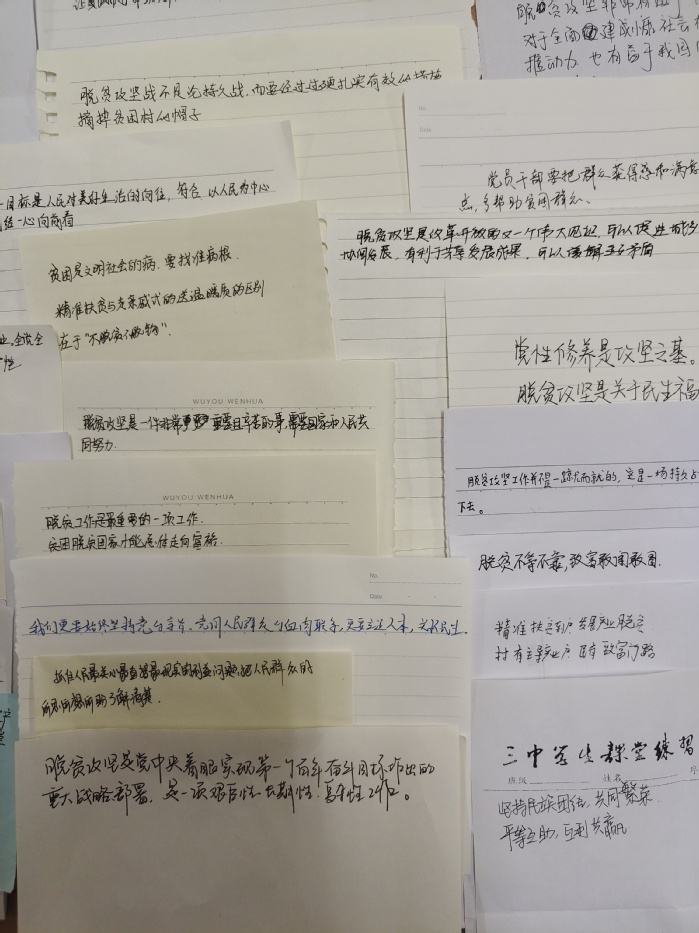 脱贫攻坚
对于全面建成小康社会
推动力 也有益于我国
脱贫攻坚战不是论持久战，而要经过过硬扎实有效的措施
摘掉贫困村的帽子
No.
Date
党员干部要把群众获得感和满意
点，多帮助贫困群众。
目标是人民对美好生活的向往，符合 以人民为中心
脱贫攻坚是改革开放的又一个伟大见证，可以促进城乡
协同发展，有利于共享发展成果，可以缓解主要矛盾
贫困是文明社会的病，要找准病根．
精准扶贫与支票威式的送温暖质的区别
在于“不脱贫不脱钩”．
党性修养是攻坚之基。
脱贫攻坚是关于民生福
WUYOU WENHUA
脱贫攻坚是一件非常重要且辛苦的事，需要国家和人民共
同努力．
脱贫攻坚工作并不是一蹴而就的，它是一场持久
下去。
WUYOU WENHUA
脱贫工作是最重要的一项工作．
贫困脱贫国家才能总体走向富裕．
脱贫不等不靠，致富敢闯敢冒．
No.
Date
我们要去始终坚持党的宗旨，党同人民群众的血肉联系，更要关注人本，关状民生．
精准扶贫到户 发展产业脱贫
村有主导产业 户有致富门路
抓住人民最关心最直接最现实的利益问题，把人民群众的
所思所想所盼了解清楚．
脱贫攻坚是党中央着眼实现第一个百年奋斗目标作出的
重大战略部署，是一项艰巨性 长期性 复杂性工作。
三中学生课堂练习
班级 姓名
坚持民族团结，共同繁荣．
平等互助，互利共赢